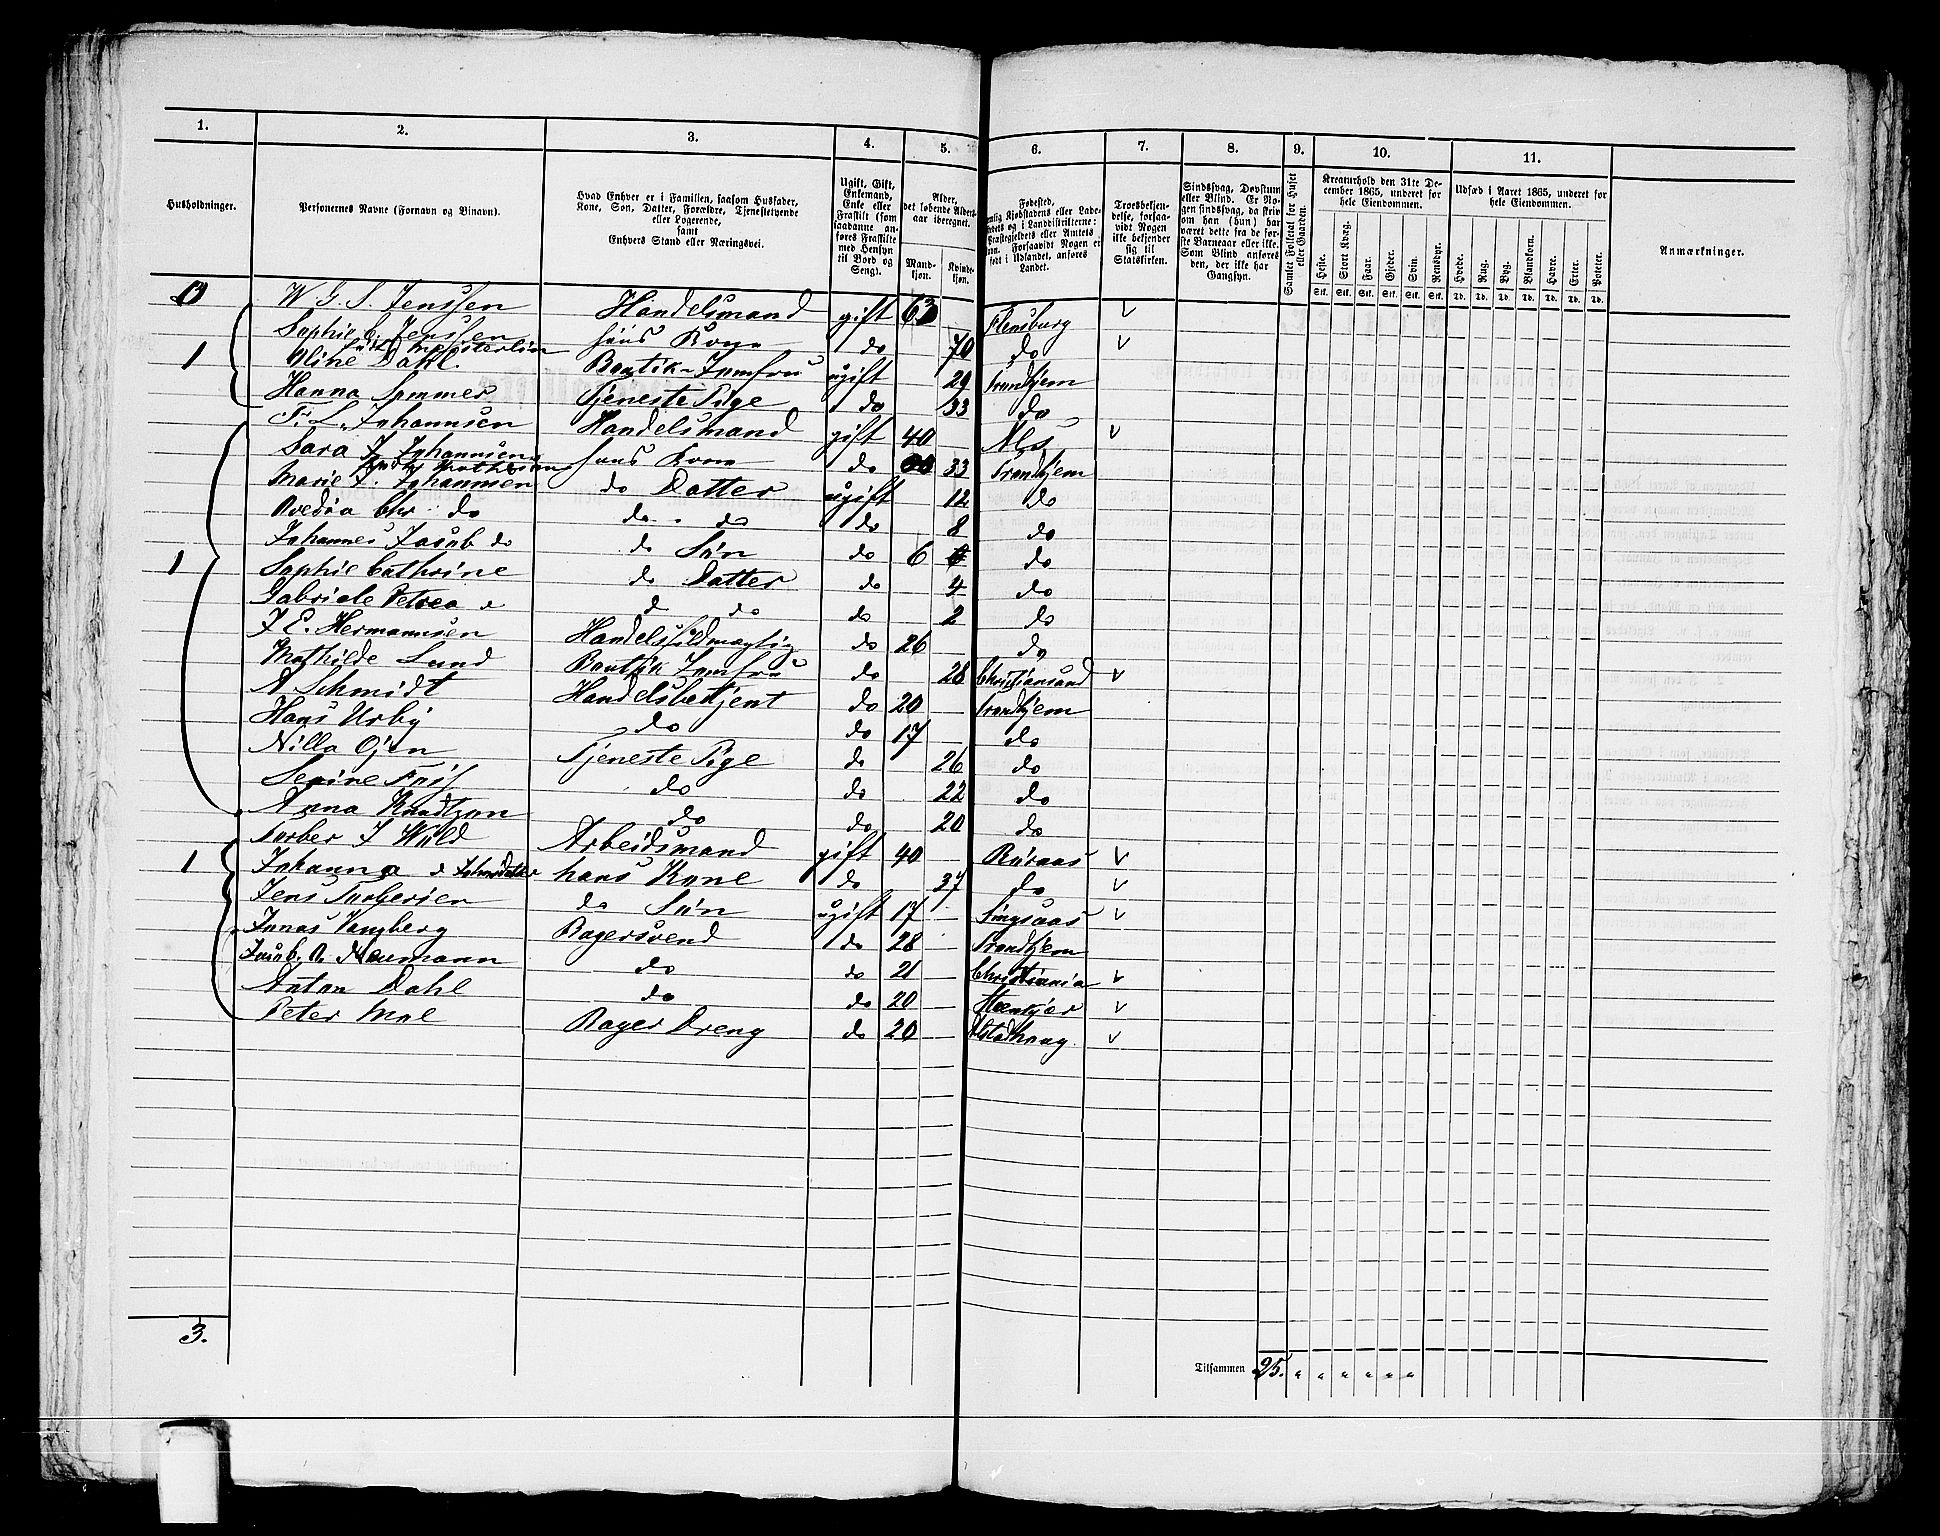 1. 2. 3. 4. 5. 6. 7. 8. 9. 10. 11.
Husholdninger.
Personernes Navne (Fornavn og Binavn).
Hvad Enhver er i Familien, saasom Husfader,
Kone, Søn, Datter, Forældre, Tjenestetyende
eller Logerende,
samt
Enhvers Stand eller Næringsvei.
Ugift, Gift,
Enkemand,
Enke eller
Fraskilt (som
saadanne an-
føres Fraskilte
med Hensyn
til Bord og
Seng).
Alder,
det løbende Alders-
aar iberegnet.
Mand-
kjøn.
Kvinde-
kjøn.
Fødested,
Kjøbstadens eller Lade-
og i Landdistrikterne:
Præstegjeldets eller Amtets
Forsaavidt Nogen er
født i Udlandet, anføres
Landet.
Troesbekjen-
delse, forsaa-
vidt Nogen
ikke bekjender
sig til
Statskirken.
Sindssvag, Døvstum
eller Blind. Er No-
gen sindssvag, da skriv
om han (hun) har
været dette fra de før-
ste Barneaar eller ikke.
Som Blind anføres
den, der ikke har
Gangsyn.
Samlet Folketal for Huset
eller Gaarden.
Kreaturhold den 31te De-
cember 1865, underet for
hele Eiendommen.
Heste. Stort Kvæg. Faar. Gjeder. Svin. Rensdyr.
Stk. Stk. Stk. Stk. Stk. Stk.
Udsæd i Aaret 1865, underet for
hele Eiendommen.
Hvede. Rug. Byg. Blandkorn. Havre. Erter. Poteter.
Td. Td. Td. Td. Td. Td. Td.
Anmærkninger.
W G. S. Jenssen Handelsmand gift 63 Flensburg v
Sophie C. Jenssen hans Kone do 70 do v
1 Oline Dahl. Boutik-Jomfru ugift 29 Trondhjem
Hanna Sommer Tjeneste Pige do 33 do
F. L. Johannsen Handelsmand gift 40 Als v
Sara J Johannsen hans Kone do 33 Trondhjem
Marie J. Johannsen do Datter ugift 12 do
Ovedia Chr. do do do do 8 do
Johannes Jacob do do Søn do 6 do
1 Sophie Cathrine do Datter do 4 do
Gabriele Petrea d do do 2 do
J E. Hermannsen Handelsfuldmægtig do 26 do
Mathilde Lund Boutik Jomfru do 28 Christiansand v
A Schmidt Handelsbetjent do 20 Trondhjem
Hans Urby do do 17 do
Nilla Tjeneste Pige do 26 do
Serine do do 22 do
Anna Knudtzon do do 20 do
Torber J Wold Arbeidsmand gift 40 Röraas v
1 Johanna hans Kone do 37 do v
Jens Torbersen do Søn ugift 17 Singsaas v
Jonas Vangberg Bagersvend do 28 Trondhjem
Jacob. A Neumann do do 21 Christiania v
Anton Dahl do do 20 v
Peter Moe Bager Dreng do 20 Alstadhaug v
3.
Tilsammen 25. " " " " " "